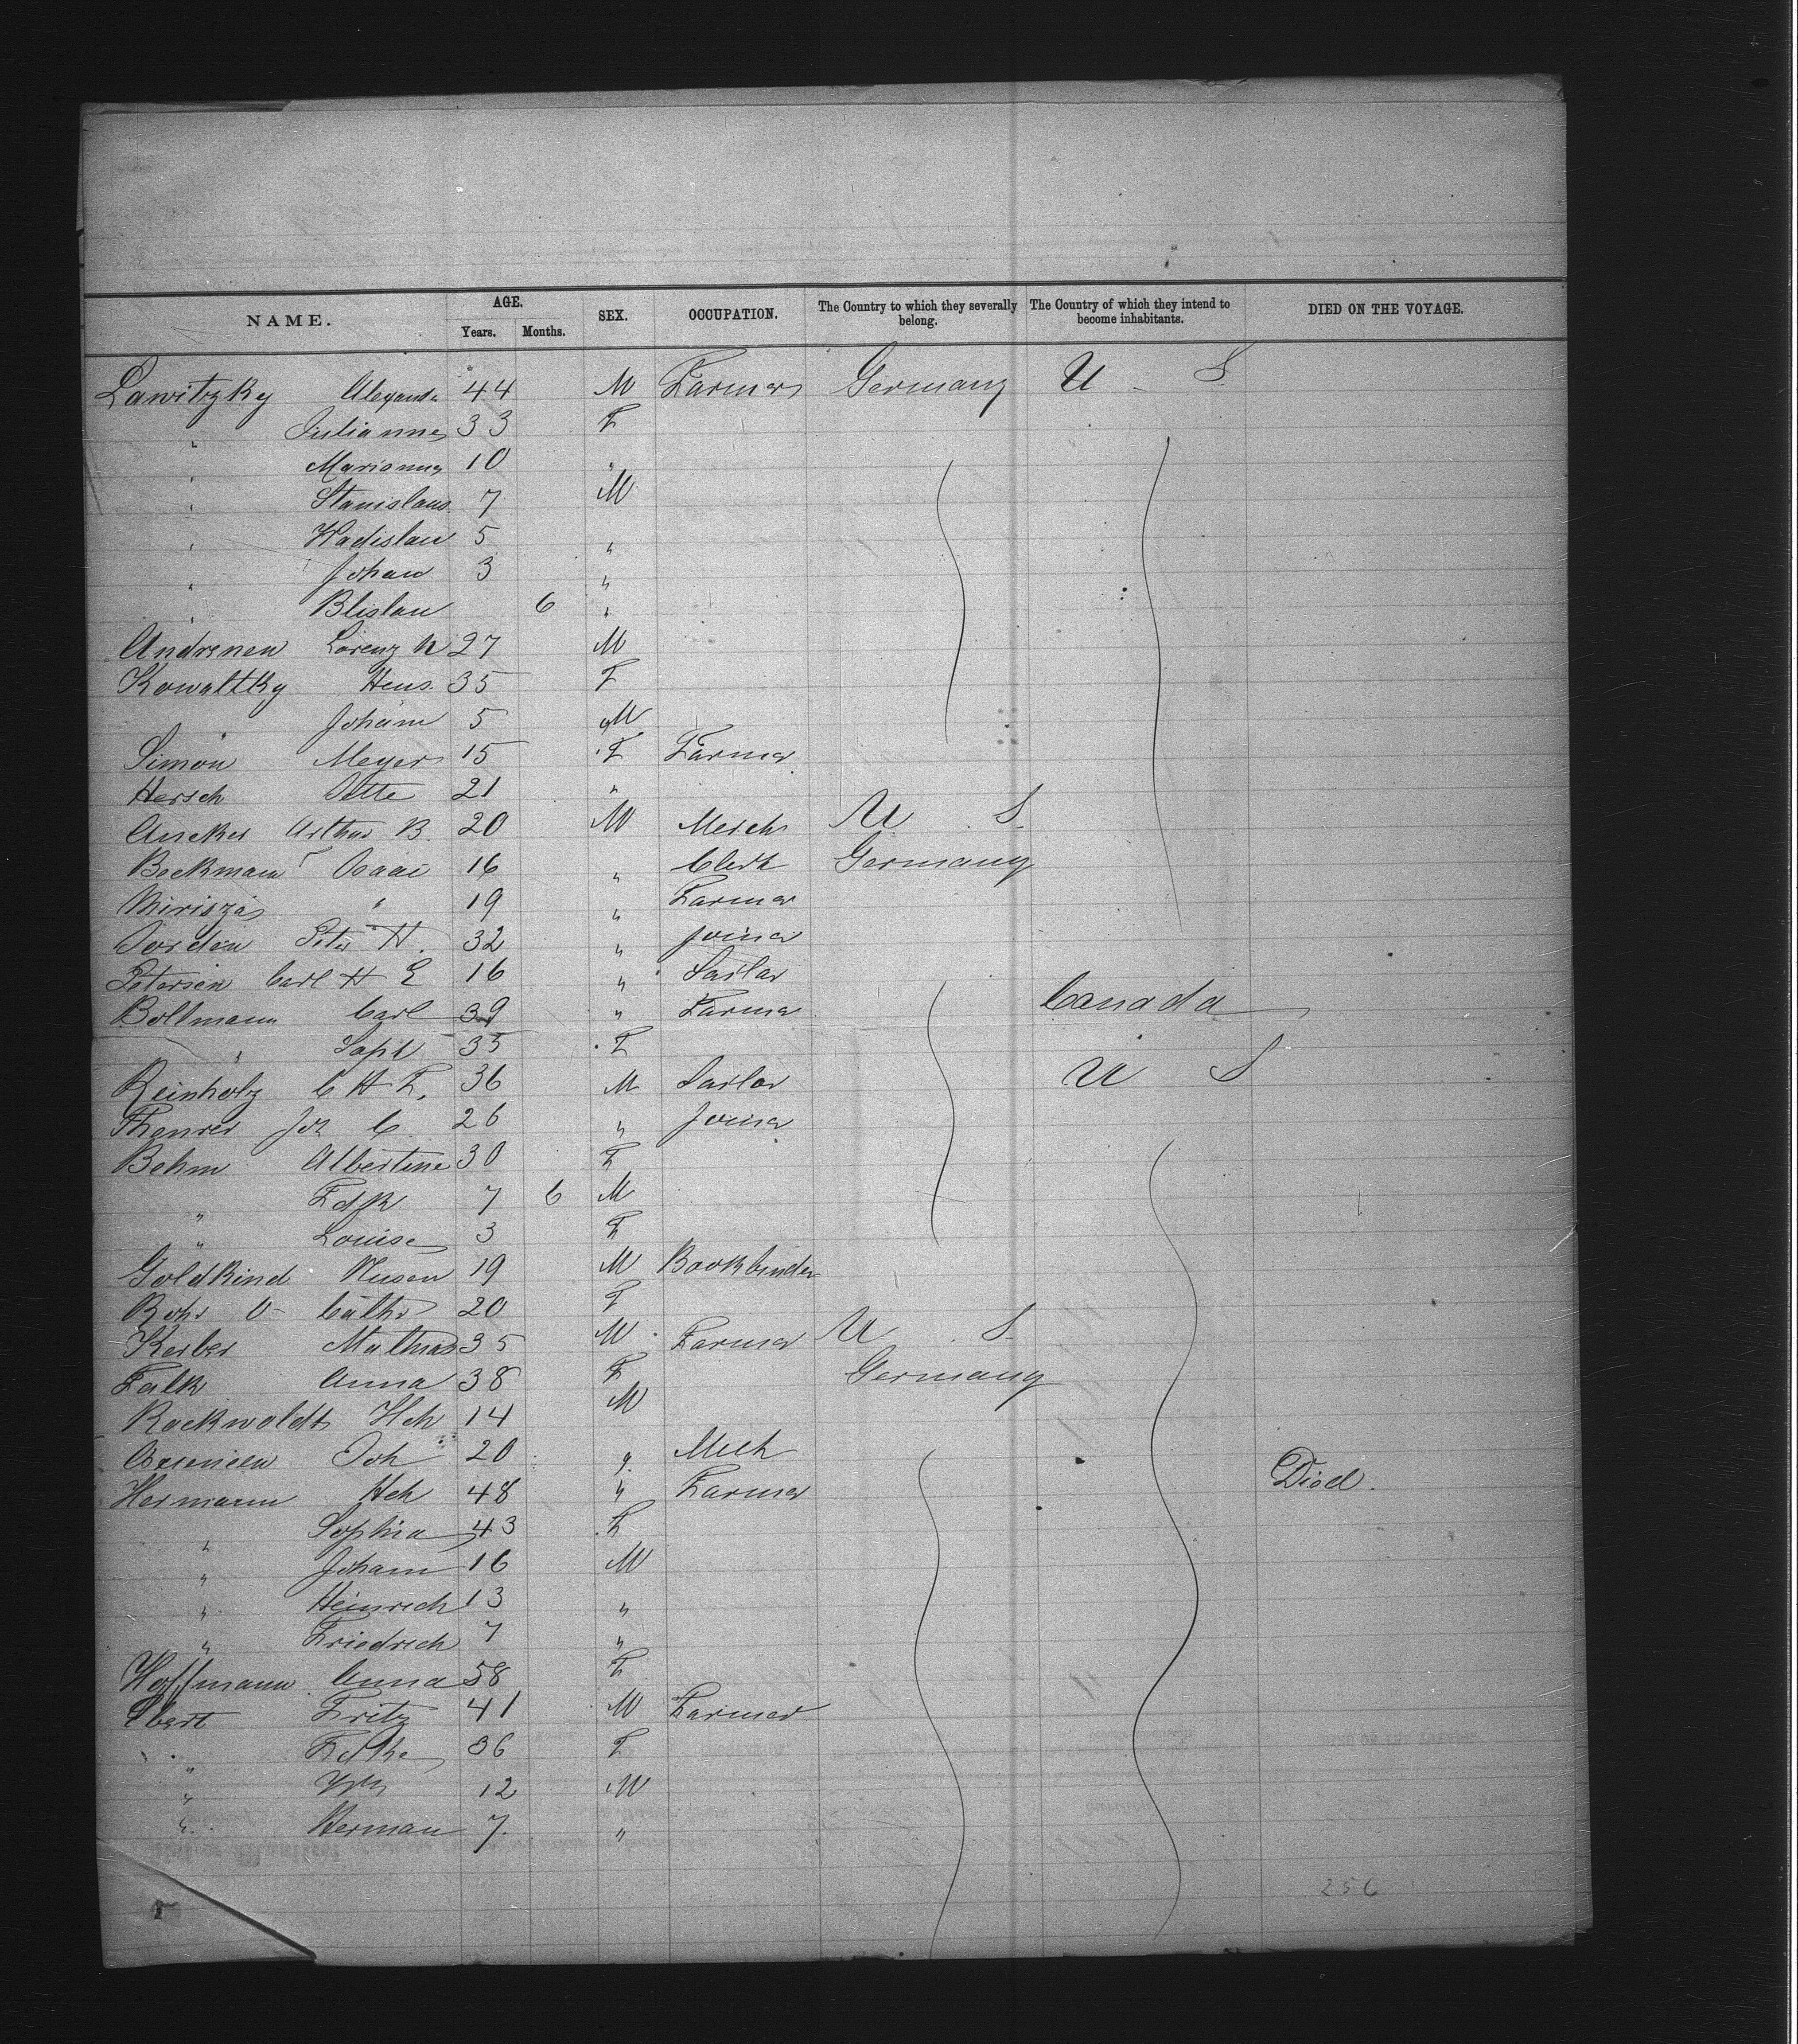 NAME. AGE. SEX. OCCUPATION. The Country to which they severally belong. The Country of which they intend to become inhabitants. DIED ON THE VOYAGE.
Years. Months.
Lawitzky 44 M Farmer Germany U S
" Julianna 33 F
" Marianna 10 "
" Stanislaus 7 M
" Wladislaw 5 "
" Johan 3 "
" 6 "
Andresen Lorenz N 27 M
Kowaltky 35 F
" Johann 5 M
Simon Meyer 15 F Farmer
Hersch 21 "
Ancker Arthur B. 20 M Merch U S
Beckmann Isaac 16 " Clerk Germany
" 19 " Farmer
Jorden Peter H. 32 " Joiner
Petersen Carl H E 16 " Sailor
Bollmann Carl 39 " Farmer Canada
" 35 F
Reinholz C H F. 36 M Sailor U S
Joh C. 26 " Joiner
Behm Albertine 30 F
" 7 6 M
" Louise 3 F
Goldkind Nusen 19 M Bookbinder
Rohr v Cathr 20 F
Kerber Mathias 35 M Farmer U S
Falk Anna 38 F Germany
Rockwoldt Hch 14 M
Joh 20 "
Hermann Hch 48 " Farmer Died.
" Sophia 43 F
" Johann 16 M
" Heinrich 13 "
" Friedrich 7 "
Hoffmann Anna 58 F
Ebert Fritz 41 M Farmer
" 36 F
" Wm 12 M
" Herman 7. "
256